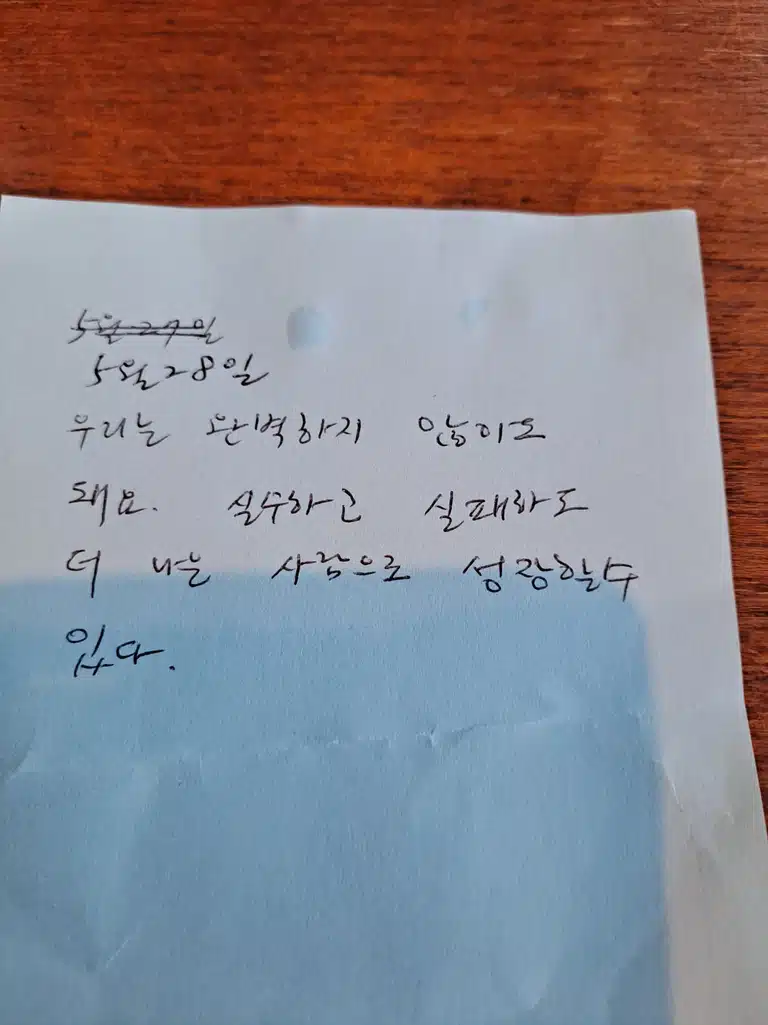 5월 27일
5월 28일
우리는 완벽하지 않이도
돼요. 실수하고 실패하도
더 나은 사람으로 성장할수
있다.